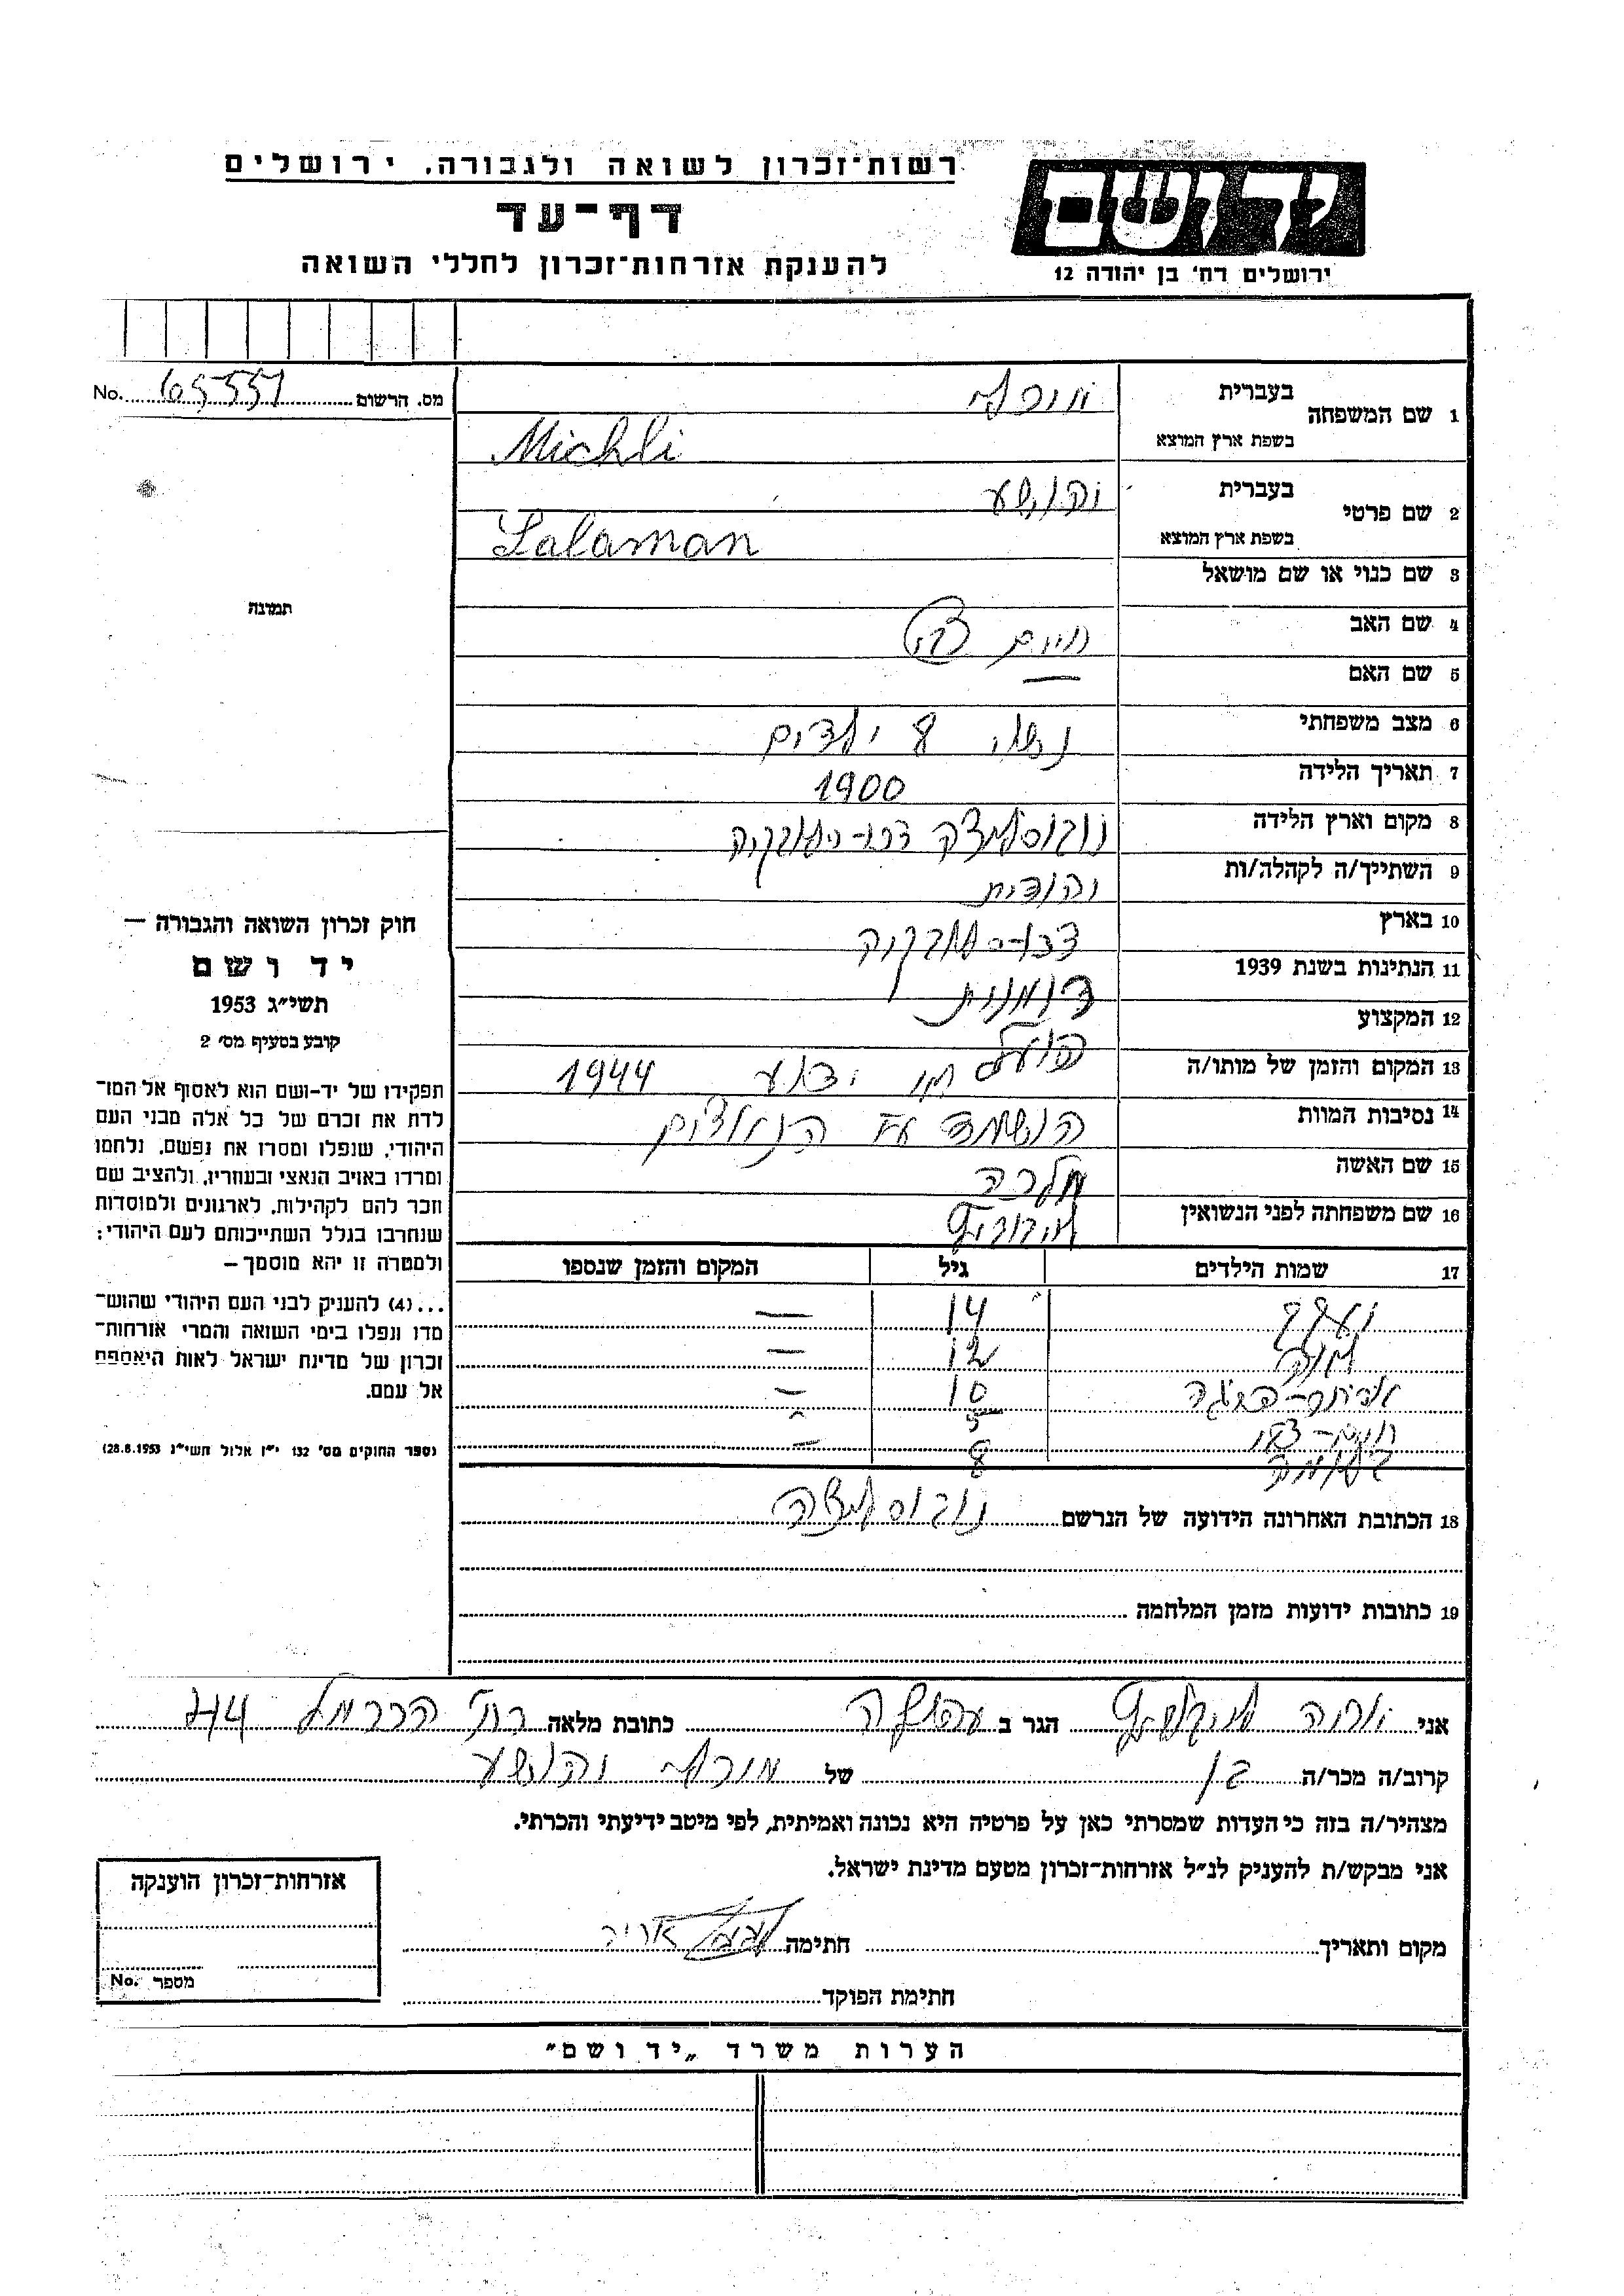 רשות־זכרון לשואה ולגבורה, ירושלים
דף־עד
להענקת אזרחות־זכרון לחללי השואה
יד ושם
ירושלים רח׳ בן יהודה 12
מס. הרשום 65551 No.
1 שם המשפחה
בעברית
בשפת ארץ המוצא Michli
2 שם פרטי
בעברית יהושע
בשפת ארץ המוצא Salaman
3 שם כנוי או שם מושאל
4 שם האב חיים צבי
5 שם האם —
6 מצב משפחתי נשוי 8 ילדים
7 תאריך הלידה 1900
8 מקום וארץ הלידה
9 השתייך/ה לקהלה/ות יהודית
10 בארץ
11 הנתינות בשנת 1939
12 המקצוע פועל
13 המקום והזמן של מותו/ה לא ידוע 1944
14 נסיבות המוות הושמד עם הילדים
15 שם האשה מלכה
16 שם משפחתה לפני הנשואין
17 שמות הילדים גיל המקום והזמן שנספו
14 —
12 —
10 —
חיים־צבי 5 —
8
18 הכתובת האחרונה הידועה של הנרשם
19 כתובות ידועות מזמן המלחמה
תמונה
חוק זכרון השואה והגבורה —
יד ושם
תשי״ג 1953
קובע בסעיף מס׳ 2
תפקידו של יד-ושם הוא לאסוף אל המו־
לדת את זכרם של כל אלה מבני העם
היהודי, שנפלו ומסרו את נפשם, נלחמו
ומרדו באויב הנאצי ובעוזריו, ולהציב שם
וזכר להם לקהילות, לארגונים ולמוסדות
שנחרבו בגלל השתייכותם לעם היהודי;
ולמטרה זו יהא מוסמך —
...(4) להעניק לבני העם היהודי שהוש־
מדו ונפלו בימי השואה והמרי אזרחות־
זכרון של מדינת ישראל לאות היאספם
אל עמם.
(ספר החוקים מס׳ 132 י״ז אלול תשי״ג 28.8.1953)
אני הגר ב עפולה כתובת מלאה רח׳ הכרמל 744
קרוב/ה מכר/ה בן של יהושע
מצהיר/ה בזה כי העדות שמסרתי כאן על פרטיה היא נכונה ואמיתית, לפי מיטב ידיעתי והכרתי.
אני מבקש/ת להעניק לנ״ל אזרחות־זכרון מטעם מדינת ישראל.
מקום ותאריך חתימה
חתימת הפוקד
אזרחות־זכרון הוענקה
מספר No.
הערות משרד „יד ושם״